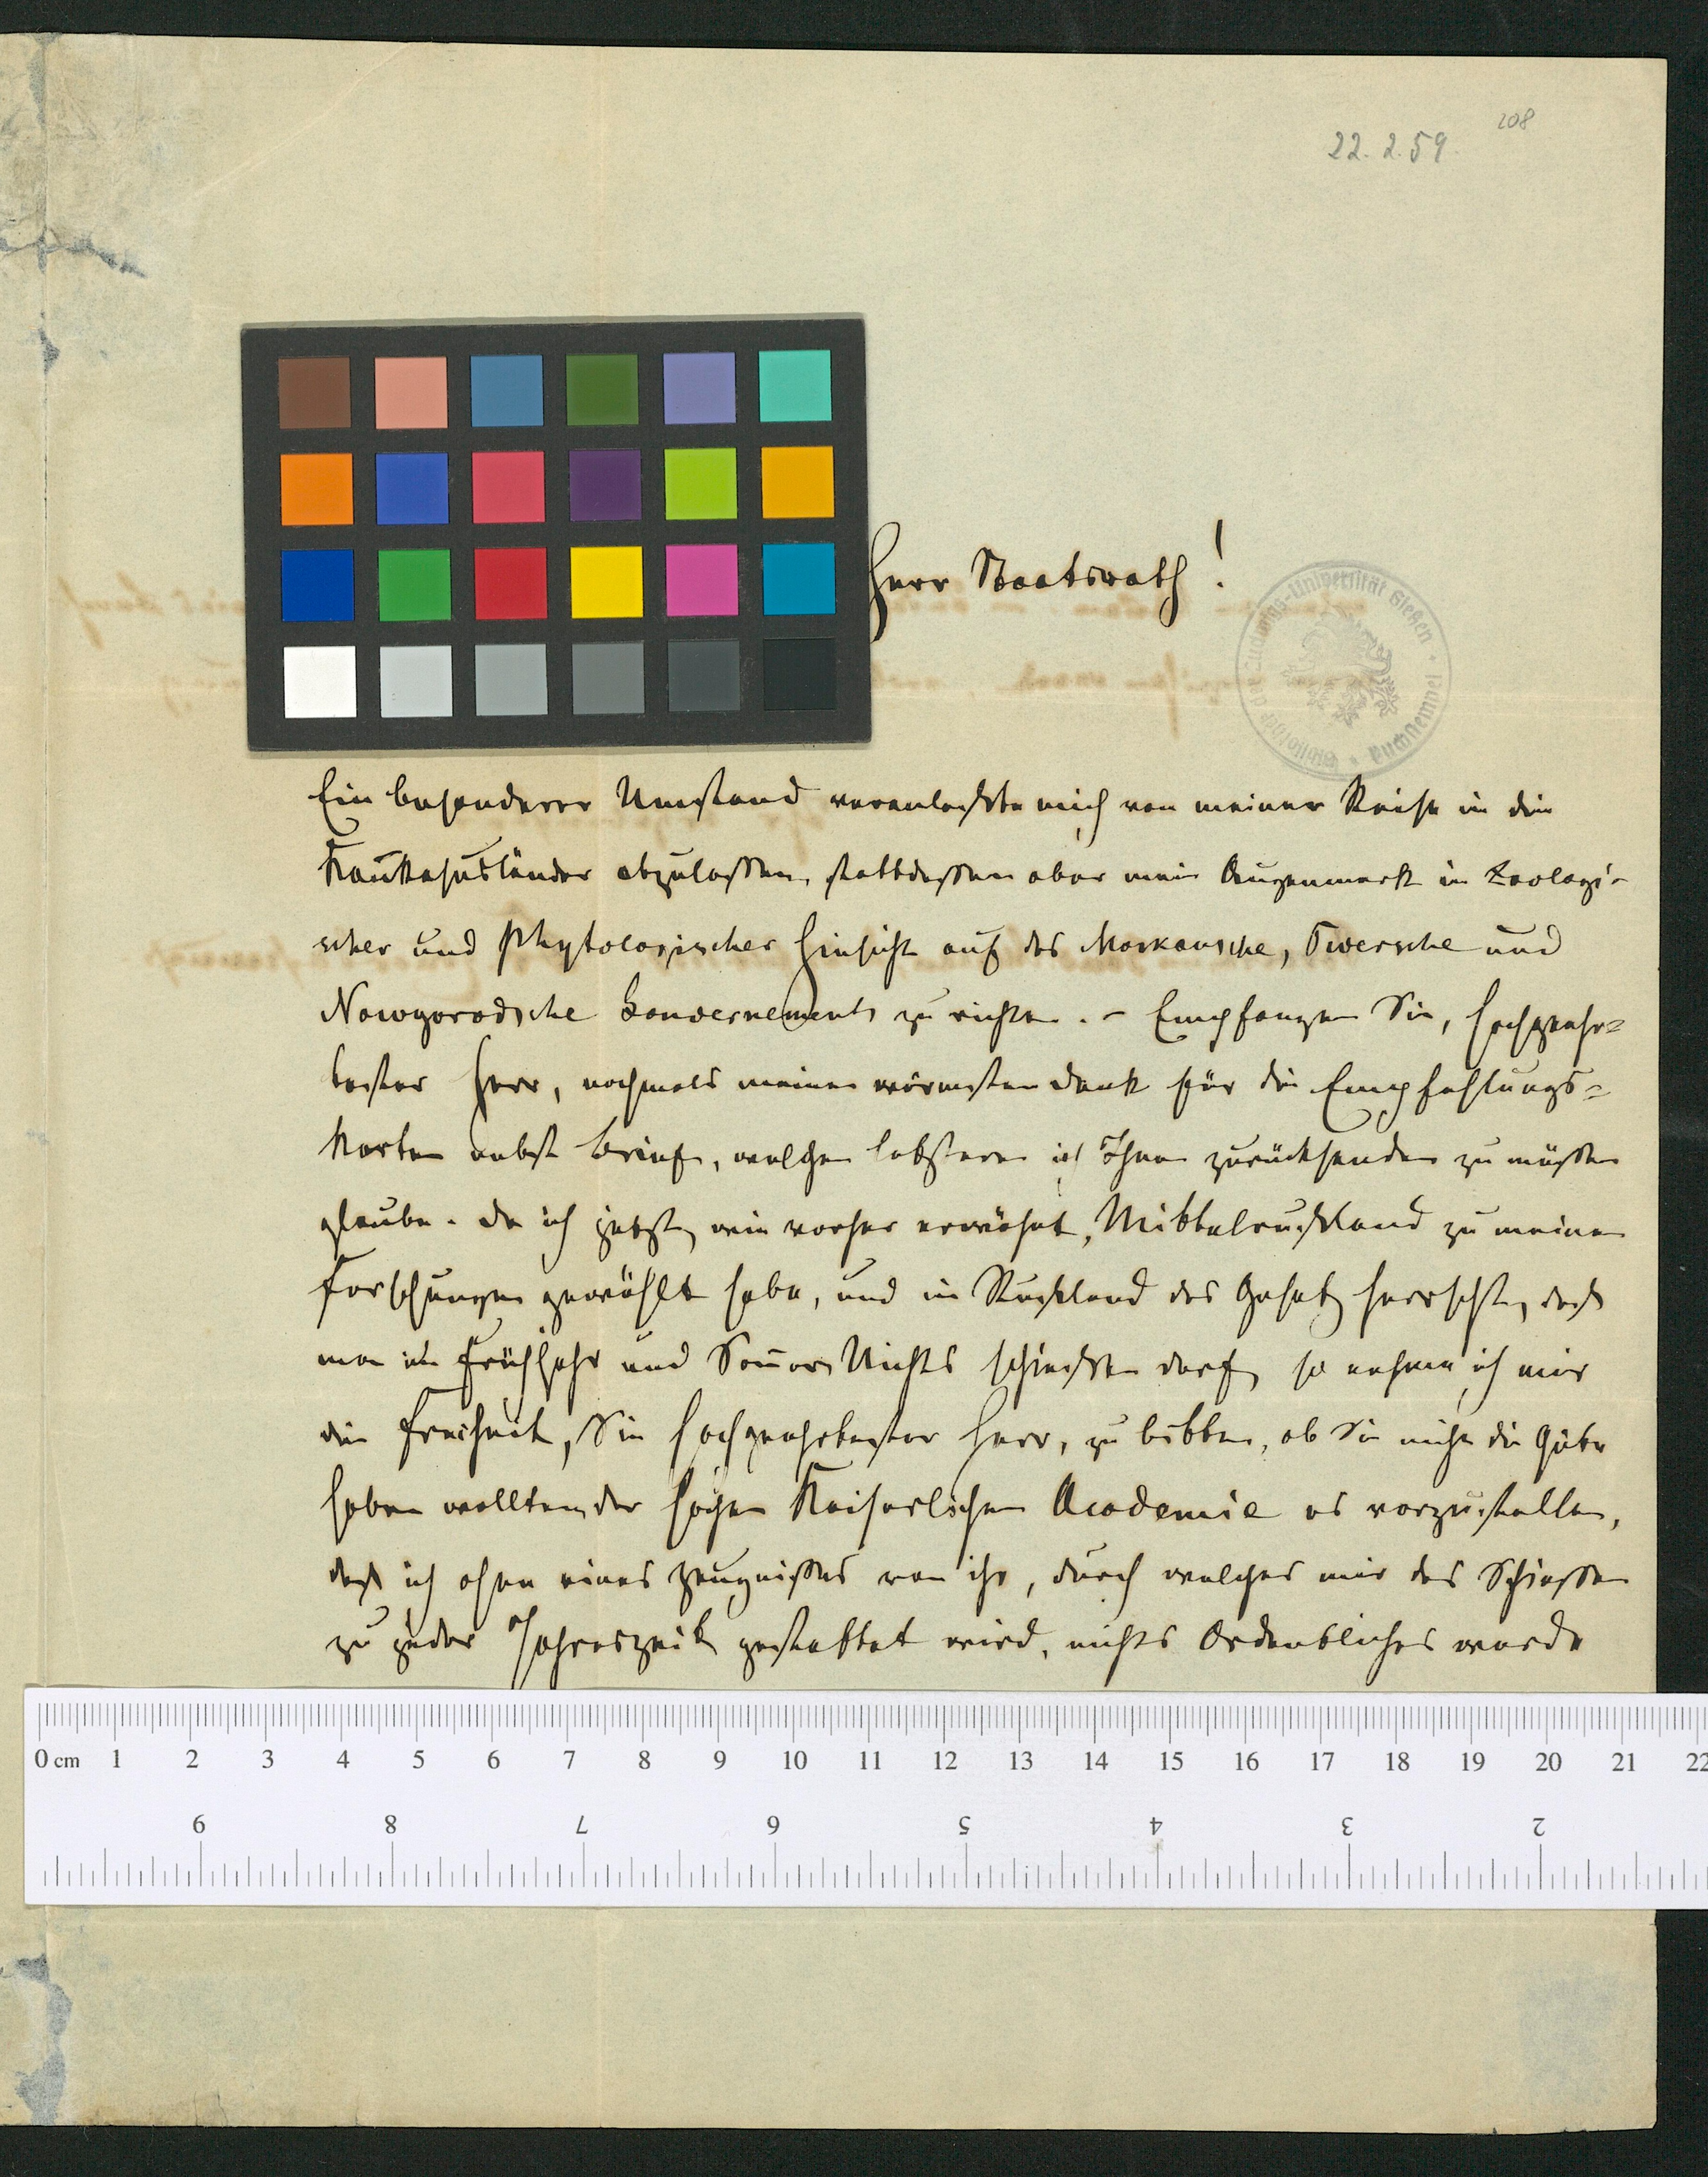 208
22. 2. 59.
Herr Staatsrath!
Bibliothek der Ludwigs-Universität Giessen · Buchnerinnen
Ein besonderer Umstand veranlasste mich von meiner Reise in die
Kaukasusländer abzulassen, stattdessen aber mein Augenmerk in Zoologi-
scher und Phytologischer Hinsicht auf das Moskausche, Twersche und
Nowgorodsche Gouvernements zu richten. – Empfangen Sie, hochgeehr-
tester Herr, nochmals meinen wärmsten Dank für die Empfehlungs-
karten nebst Brief, welchen letzteren ich Ihnen zurücksenden zu müssen
glaube. Da ich jetzt, wie vorher erwähnt, Mittelrussland zu meinen
Forschungen gewählt habe, und in Russland das Gesetz herrscht, dass
man im Frühjahr und Som̄er Nichts schiessen darf, so nehme ich mir
die Freiheit, Sie hochgeehrtester Herr, zu bitten, ob Sie nicht die Güte
haben wollten, der hohen Kaiserlichen Academie es vorzustellen,
dass ich ohne eines Zeugnisses von ihr, durch welches mir das Schiessen
zu jeder Jahreszeit gestattet wird, nichts Ordentliches werde
0 cm 1 2 3 4 5 6 7 8 9 10 11 12 13 14 15 16 17 18 19 20 21 22
9 8 7 6 5 4 3 2